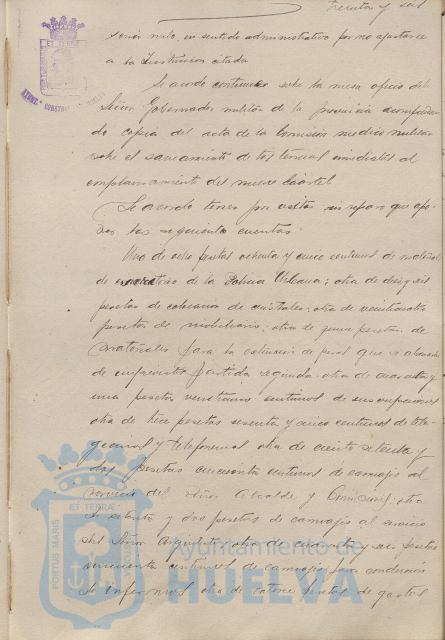 treinta y seis
será nulo, en sentido administrativo por no ajustarse
a la Instrucción citada
Se acordó sobre la mesa oficio del
Señor Gobernador militar de la provincia acompañan
do copia del acta de la Comisión medico militar
sobre el saneamiento de los terrenos inmediatos al
emplazamiento del nuevo Cuartel
Se acordó tener por vistas sin reparo que opo-
ner las siguientes cuentas.
Una de ocho pesetas ochenta y cinco centimos de material
de de la Policia Urbana; otra de
pesetas de colocacion de cristales; otra de veinticuatro
pesetas de mobiliario; otra de quince pesetas de
materiales para la extincion de que se abonará
de imprevistos partida segunda; otra de cuarenta y
una pesetas centimos de suscripciones
otra de trece pesetas sesenta y cinco centimos de tele-
gramas y telefonemas otra de ciento setenta y
dos pesetas cincuenta centimos de carruajes al
servicio del Señor Alcalde y Comisiones; otra
de setenta y dos pesetas de carruajes al servicio
del Señor Arquitecto; otra de cuarenta y seis pesetas
cincuenta centimos de carruajes para conducción
de enfermos otra de catorce pesetas de gastos
PORTUS MARIS
ET TERRÆ
Ayuntamiento de
HUELVA